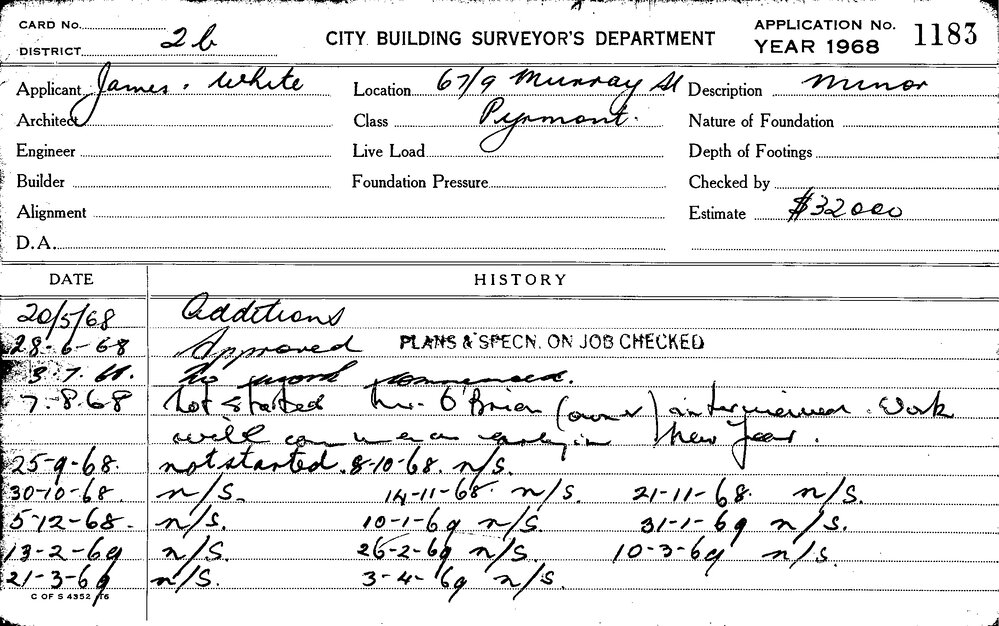 CARD No.
DISTRICT 2b
CITY BUILDING SURVEYOR'S DEPARTMENT
APPLICATION No. 1183
YEAR 1968
Applicant James. White
Location 67/9 Murray St
Description Minor
Architect
Class Pyrmont.
Nature of Foundation
Engineer
Live Load
Depth of Footings
Builder
Foundation Pressure
Checked by
Alignment
Estimate $32000
D.A.
DATE HISTORY
20/5/68 Additions
28-6-68 Approved PLANS & SPECN. ON JOB CHECKED
3.7.68. No commenced.
7.8.68 Not started Mr. O'Brien (owner) interviewed. Work
will commence early in New Year.
25-9-68. not started. 8-10-68. n/s.
30-10-68. n/s. 14-11-68. n/s. 21-11-68. n/s.
5-12-68. n/s. 10-1-69 n/s. 31-1-69 n/s.
13-2-69 n/s. 26-2-69 n/s. 10-3-69 n/s.
21-3-69 n/s. 3-4-69 n/s.
C OF S 4352 T6